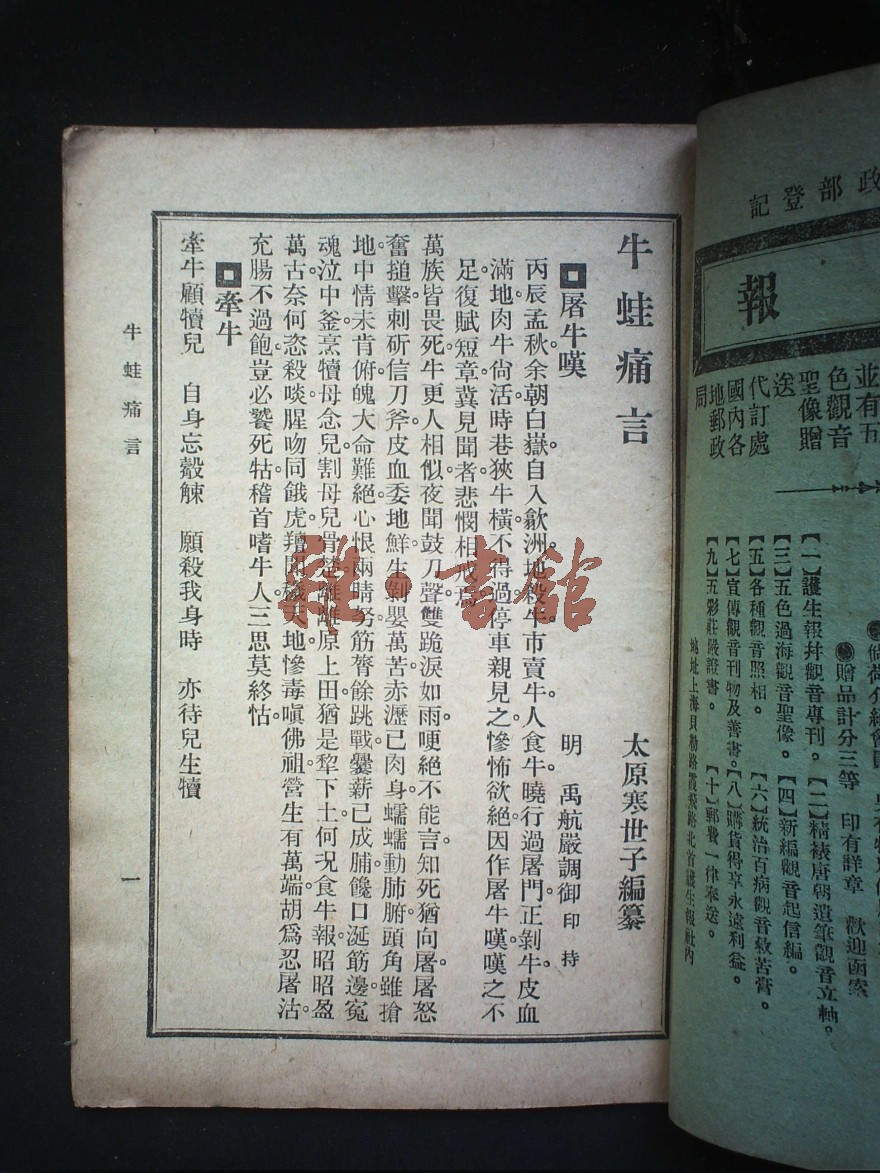 政部登記
報
並有五
色觀音
聖像贈
送
代訂處
國內各
地郵政
局
贈品計分三等 印有詳章 歡迎函索
【一】護生報幷觀音專刊。【二】精裱唐朝遺筆觀音立軸。
【三】五色過海觀音聖像。【四】新編觀音起信編。
【五】各種觀音照相。【六】統治百病觀音救苦膏。
【七】宣傳觀音刊物及善書。【八】購貨得享永遠利益。
【九】五彩莊嚴證書。【十】郵費一律奉送。
地址上海貝勒路霞飛路北首護生報社內
牛蛙痛言
太原寒世子編纂
屠牛嘆
明 禹航嚴調御 印持
丙辰孟秋余朝白嶽自入歙洲地殺牛市賣牛人食牛曉行過屠門正剝牛皮血
滿地肉牛尙活時巷狹牛橫不得過停車親見之慘怖欲絕因作屠牛嘆嘆之不
足復賦短章冀見聞者悲憫相戒焉
萬族皆畏死牛更人相似夜聞鼓刀聲雙跪淚如雨哽絕不能言知死猶向屠屠怒
奮搥擊刺斫信刀斧皮血委地鮮生剝嬰萬苦赤瀝已肉身蠕蠕動肺腑頭角雖搶
地中情未肯俯魄大命難絕心恨兩睛努筋膂餘跳戰爨薪已成脯饞口涎筋邊寃
魂泣中釜烹犢母念兒割母兒骨楚離離原上田猶是犂下土何况食牛報昭昭盈
萬古奈何恣殺啖腥吻同餓虎羶聞穢天地慘毒嗔佛祖營生有萬端胡爲忍屠沽
充腸不過飽豈必饕死牯稽首嗜牛人三思莫終怙
牽牛
牽牛顧犢兒 自身忘觳觫 願殺我身時 亦待兒生犢
牛蛙痛言
一
雜·書館